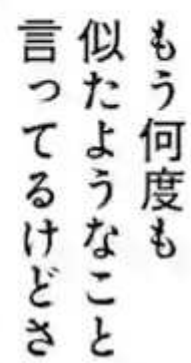 もう何度も
似たようなこと
言ってるけどさ